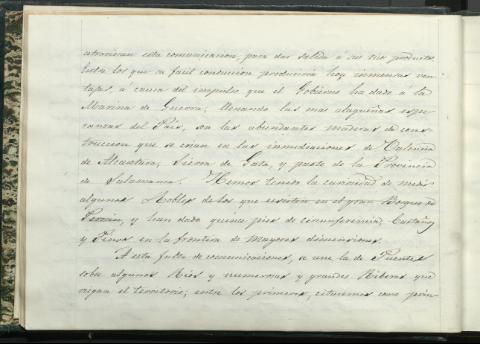 atraviesan esta comunicacion, para dar salida a sus ricos productos.
Entre los que su facil conducion produciria hoy inmensas ven-
tajas, á causa del impulso que el Gobierno ha dado á la
Marina de Guerra, llenando las mas alagueñas espe-
ranzas del Pais, son las abundantes maderas de cons-
truccion que se crian en las inmediaciones de Valencia
de Alcantara, Sierra de Gata, y parte de la Provincia
de Salamanca. Hemos tenido la curiosidad de medir
algunos Robles de los que existen en el gran Bosque de
y han dado quince pies de circunferencia; Castaños
y Pinos en la frontera de mayores dimensiones.
A esta falta de comunicaciones, se une la de Puentes
sobre algunos Rios y numerosas y grandes Riberas que
riegan el territorio; entre los primeros, citaremos como prin-